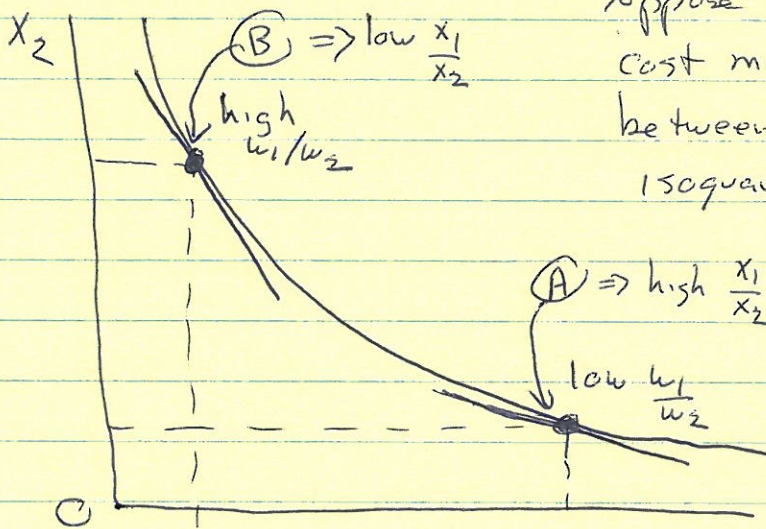 X₂
Ⓑ => low x₁/x₂
high
w₁/w₂
suppose
cost m
between
isoqua
Ⓐ => high x₁/x₂
low w₁/w₂
O